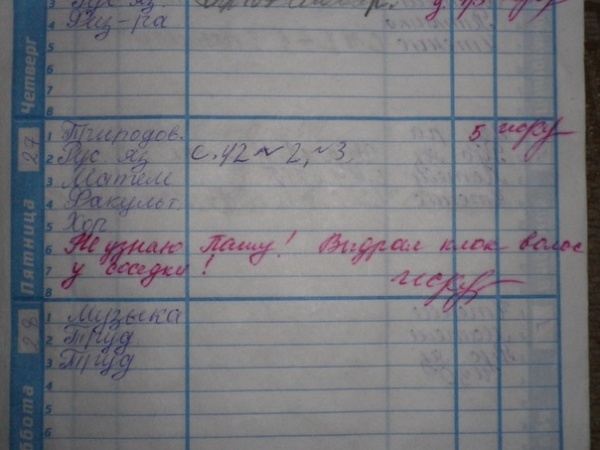 3 Рус яз.
4 Физ-ра
5
6
7
8
Четверг
1 Природов. 5
2 Рус яз с. 42 № 2, № 3.
3 Матем
4 Факульт.
5 Хор
6 Не узнаю Пашу! Выдрал клок волос
7 у соседки!
8
Пятница 27
1 Музыка
2 Труд
3 Труд
4
5
6
ббота 28